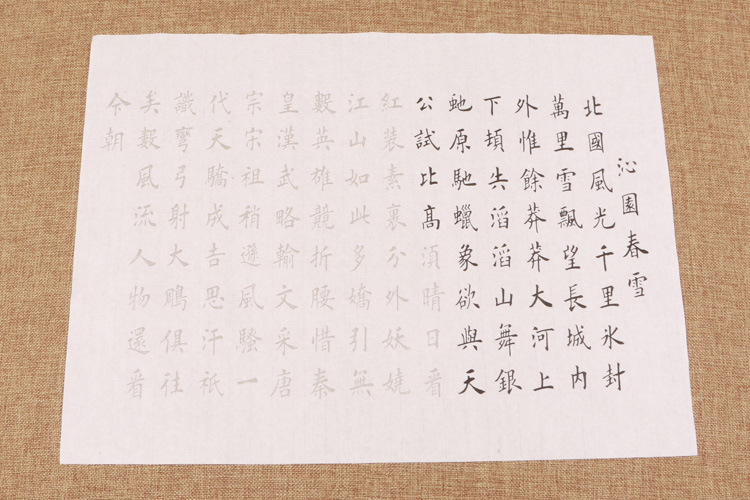 沁園春雪
北國風光千里氷封
萬里雪飄望長城内
外惟餘莽莽大河上
下頓失滔滔山舞銀
虵原馳蠟象欲與天
公試比高須晴日看
紅装素裹分外妖嬈
江山如此多嬌引無
數英雄競折腰惜秦
皇漢武略輸文采唐
宗宋祖稍遜風騷一
代天驕成吉思汗衹
識彎弓射大鵰俱往
矣數風流人物還看
今朝